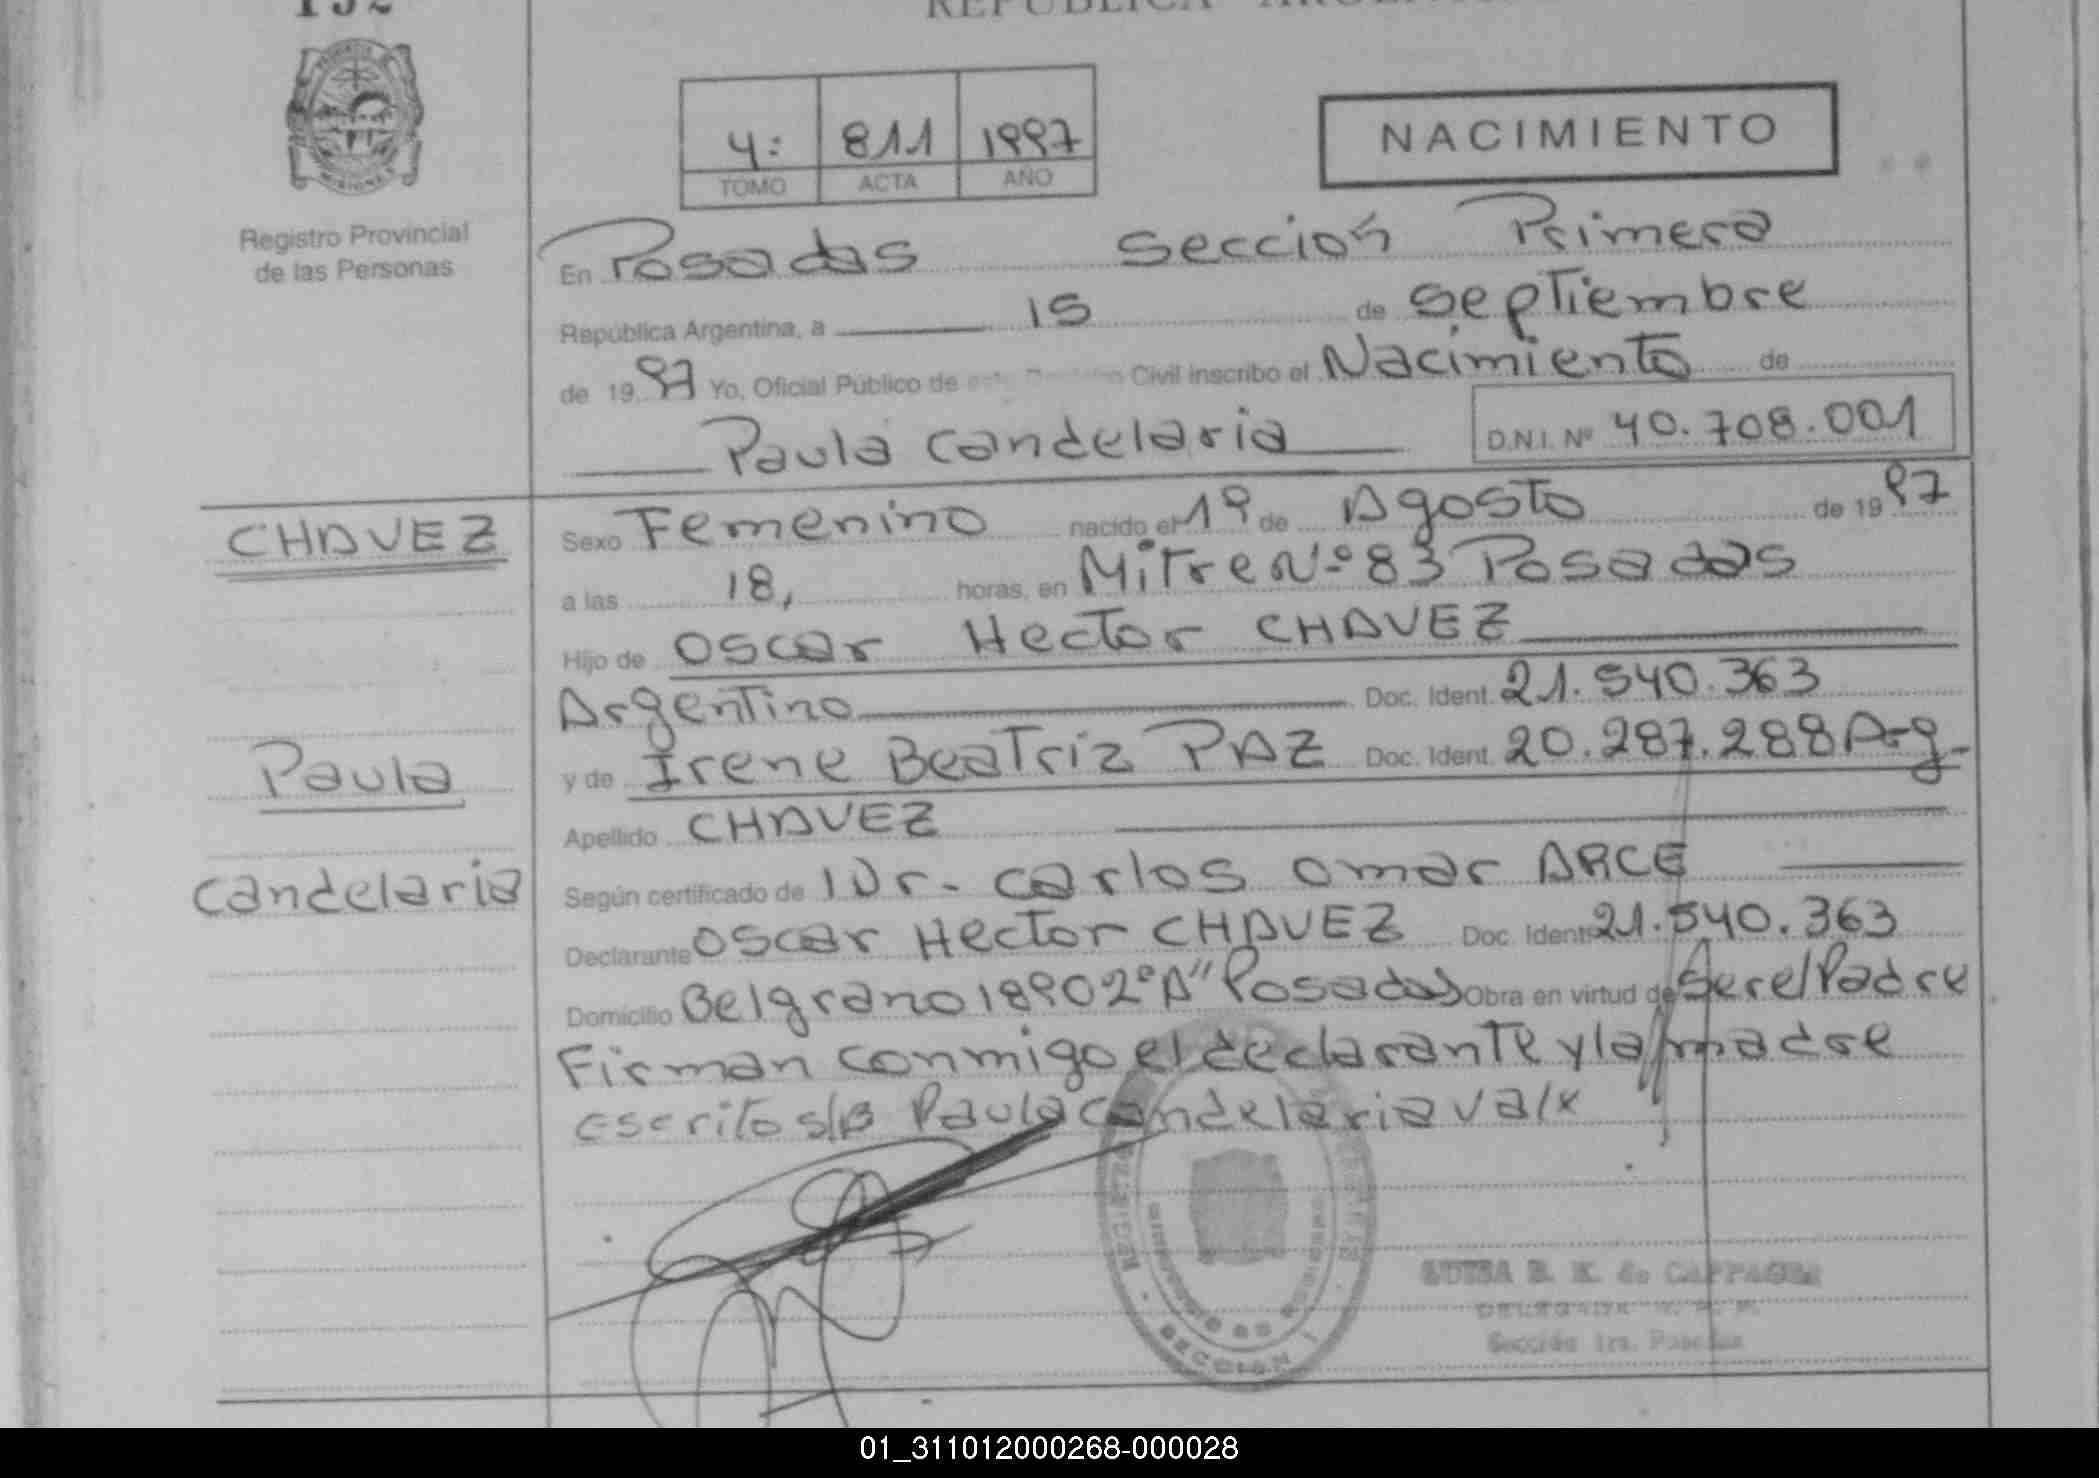 REPUBLICA ARGENTINA
4: 811 1997
TOMO ACTA AÑO
NACIMIENTO
Registro Provincial
de las Personas
En Posadas Sección Primera
República Argentina, a 15 de Septiembre
de 19 97 Yo, Oficial Público de este Registro Civil inscribo el Nacimiento de
Paula Candelaria D.N.I. Nº 40.708.001
CHAVEZ
Paula
Candelaria
Sexo Femenino nacido el 19 de Agosto de 19 97
a las 18, horas, en Mitre Nº 83 Posadas
Hijo de Oscar Hector CHAVEZ
Argentino Doc. Ident. 21.540.363
y de Irene Beatriz PAZ Doc. Ident. 20.287.288 Arg.
Apellido CHAVEZ
Según certificado de Dr. Carlos Omar ARCE
Declarante Oscar Hector CHAVEZ Doc. Ident. 21.540.363
Domicilio Belgrano 1890 2º A" Posadas Obra en virtud de Ser el Padre
Firman conmigo el declarante y la madre
escrito s/B Paula Candelaria vale
SECCION 1
Sección 1ra. Posadas
01_311012000268-000028